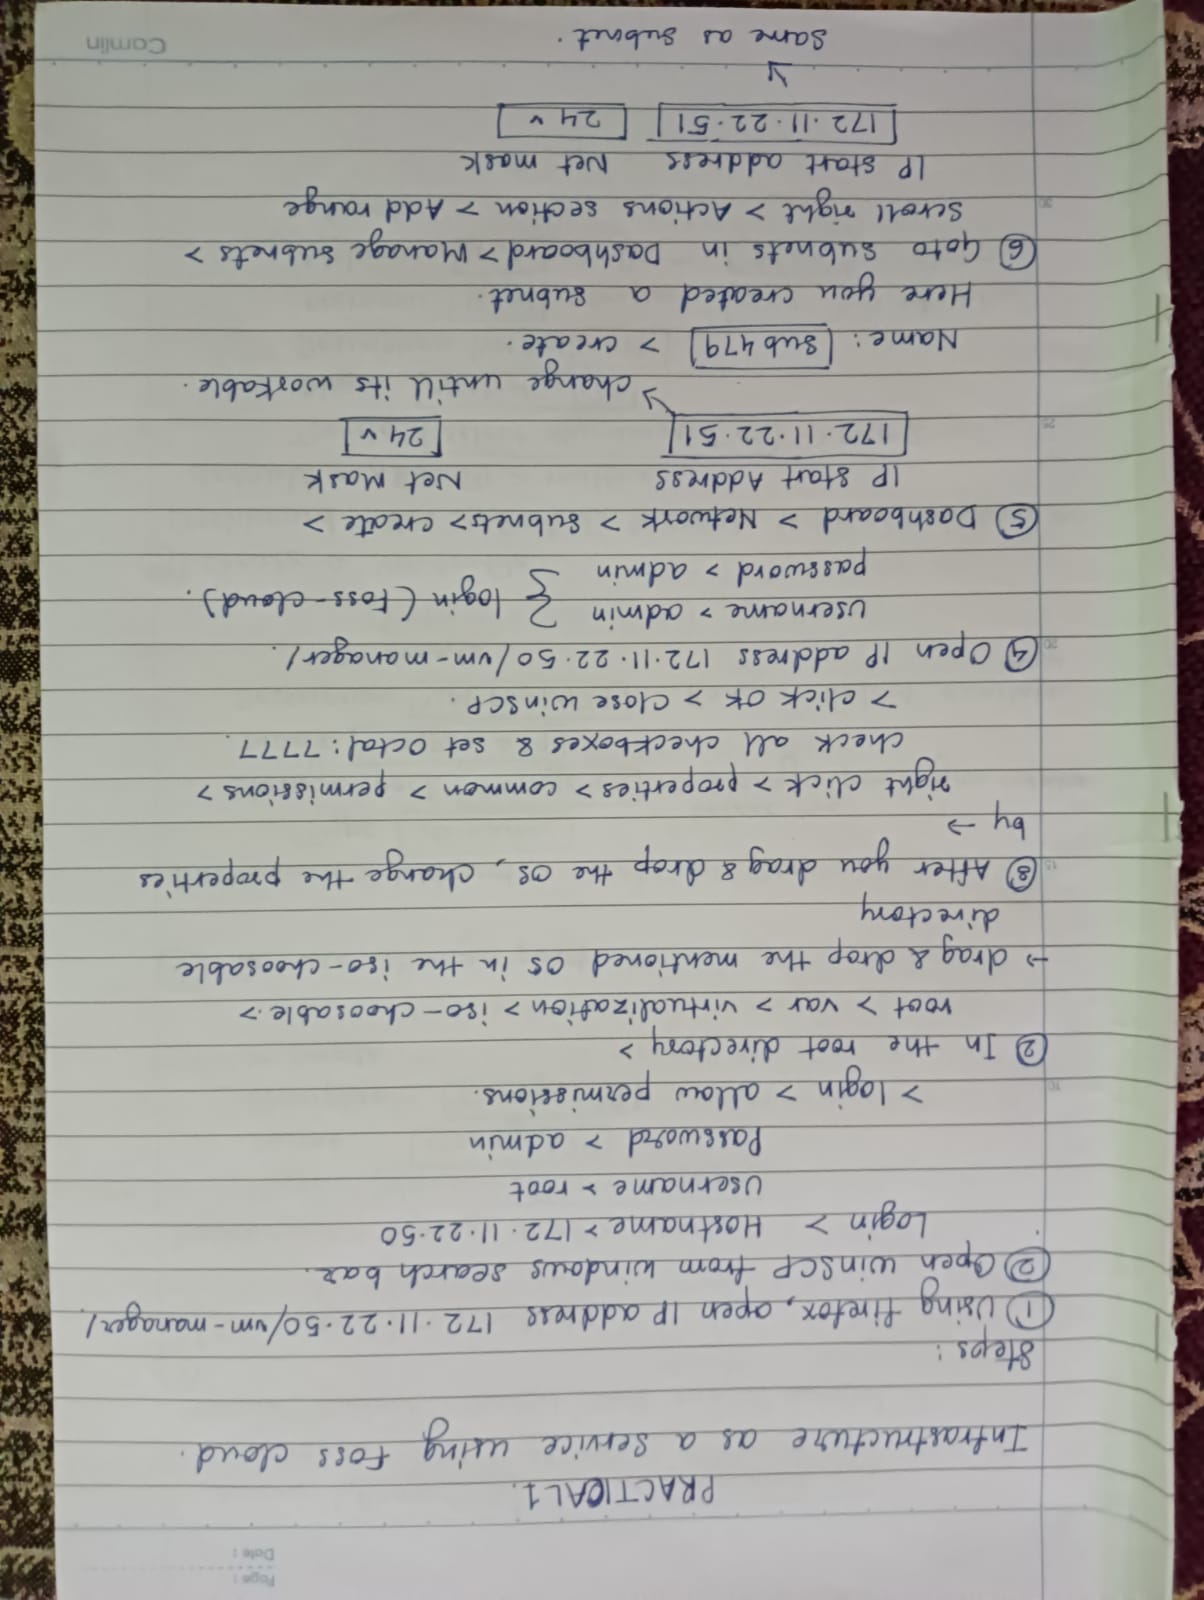 Page :
Date :
PRACTICAL 1.
Infrastructure as a service using Foss cloud.
Steps :
① Using firefox, open IP address 172.11.22.50/vm-manager/.
② Open winSCP from windows search bar.
Login > Hostname > 172.11.22.50
Username > root
Password > admin
> login > allow permissions.
② In the root directory >
root > var > virtualization > iso-choosable >
→ drag & drop the mentioned OS in the iso-choosable
directory
③ After you drag & drop the OS, change the properties
by →
right click > properties > common > permissions >
check all checkboxes & set Octal: 7777
> click OK > close winSCP.
④ Open IP address 172.11.22.50/vm-manager/.
username > admin
password > admin } login (Foss-cloud).
⑤ Dashboard > Network > subnets > create >
IP Start Address Net Mask
172.11.22.51 24 v
↘ change untill its workable.
Name: sub479 > create.
Here you created a subnet.
⑥ Goto subnets in Dashboard > Manage subnets >
scroll right > Actions section > Add range
IP start address Net mask
172.11.22.51 24 v
same as subnet.
Camlin
10
15
20
25
30